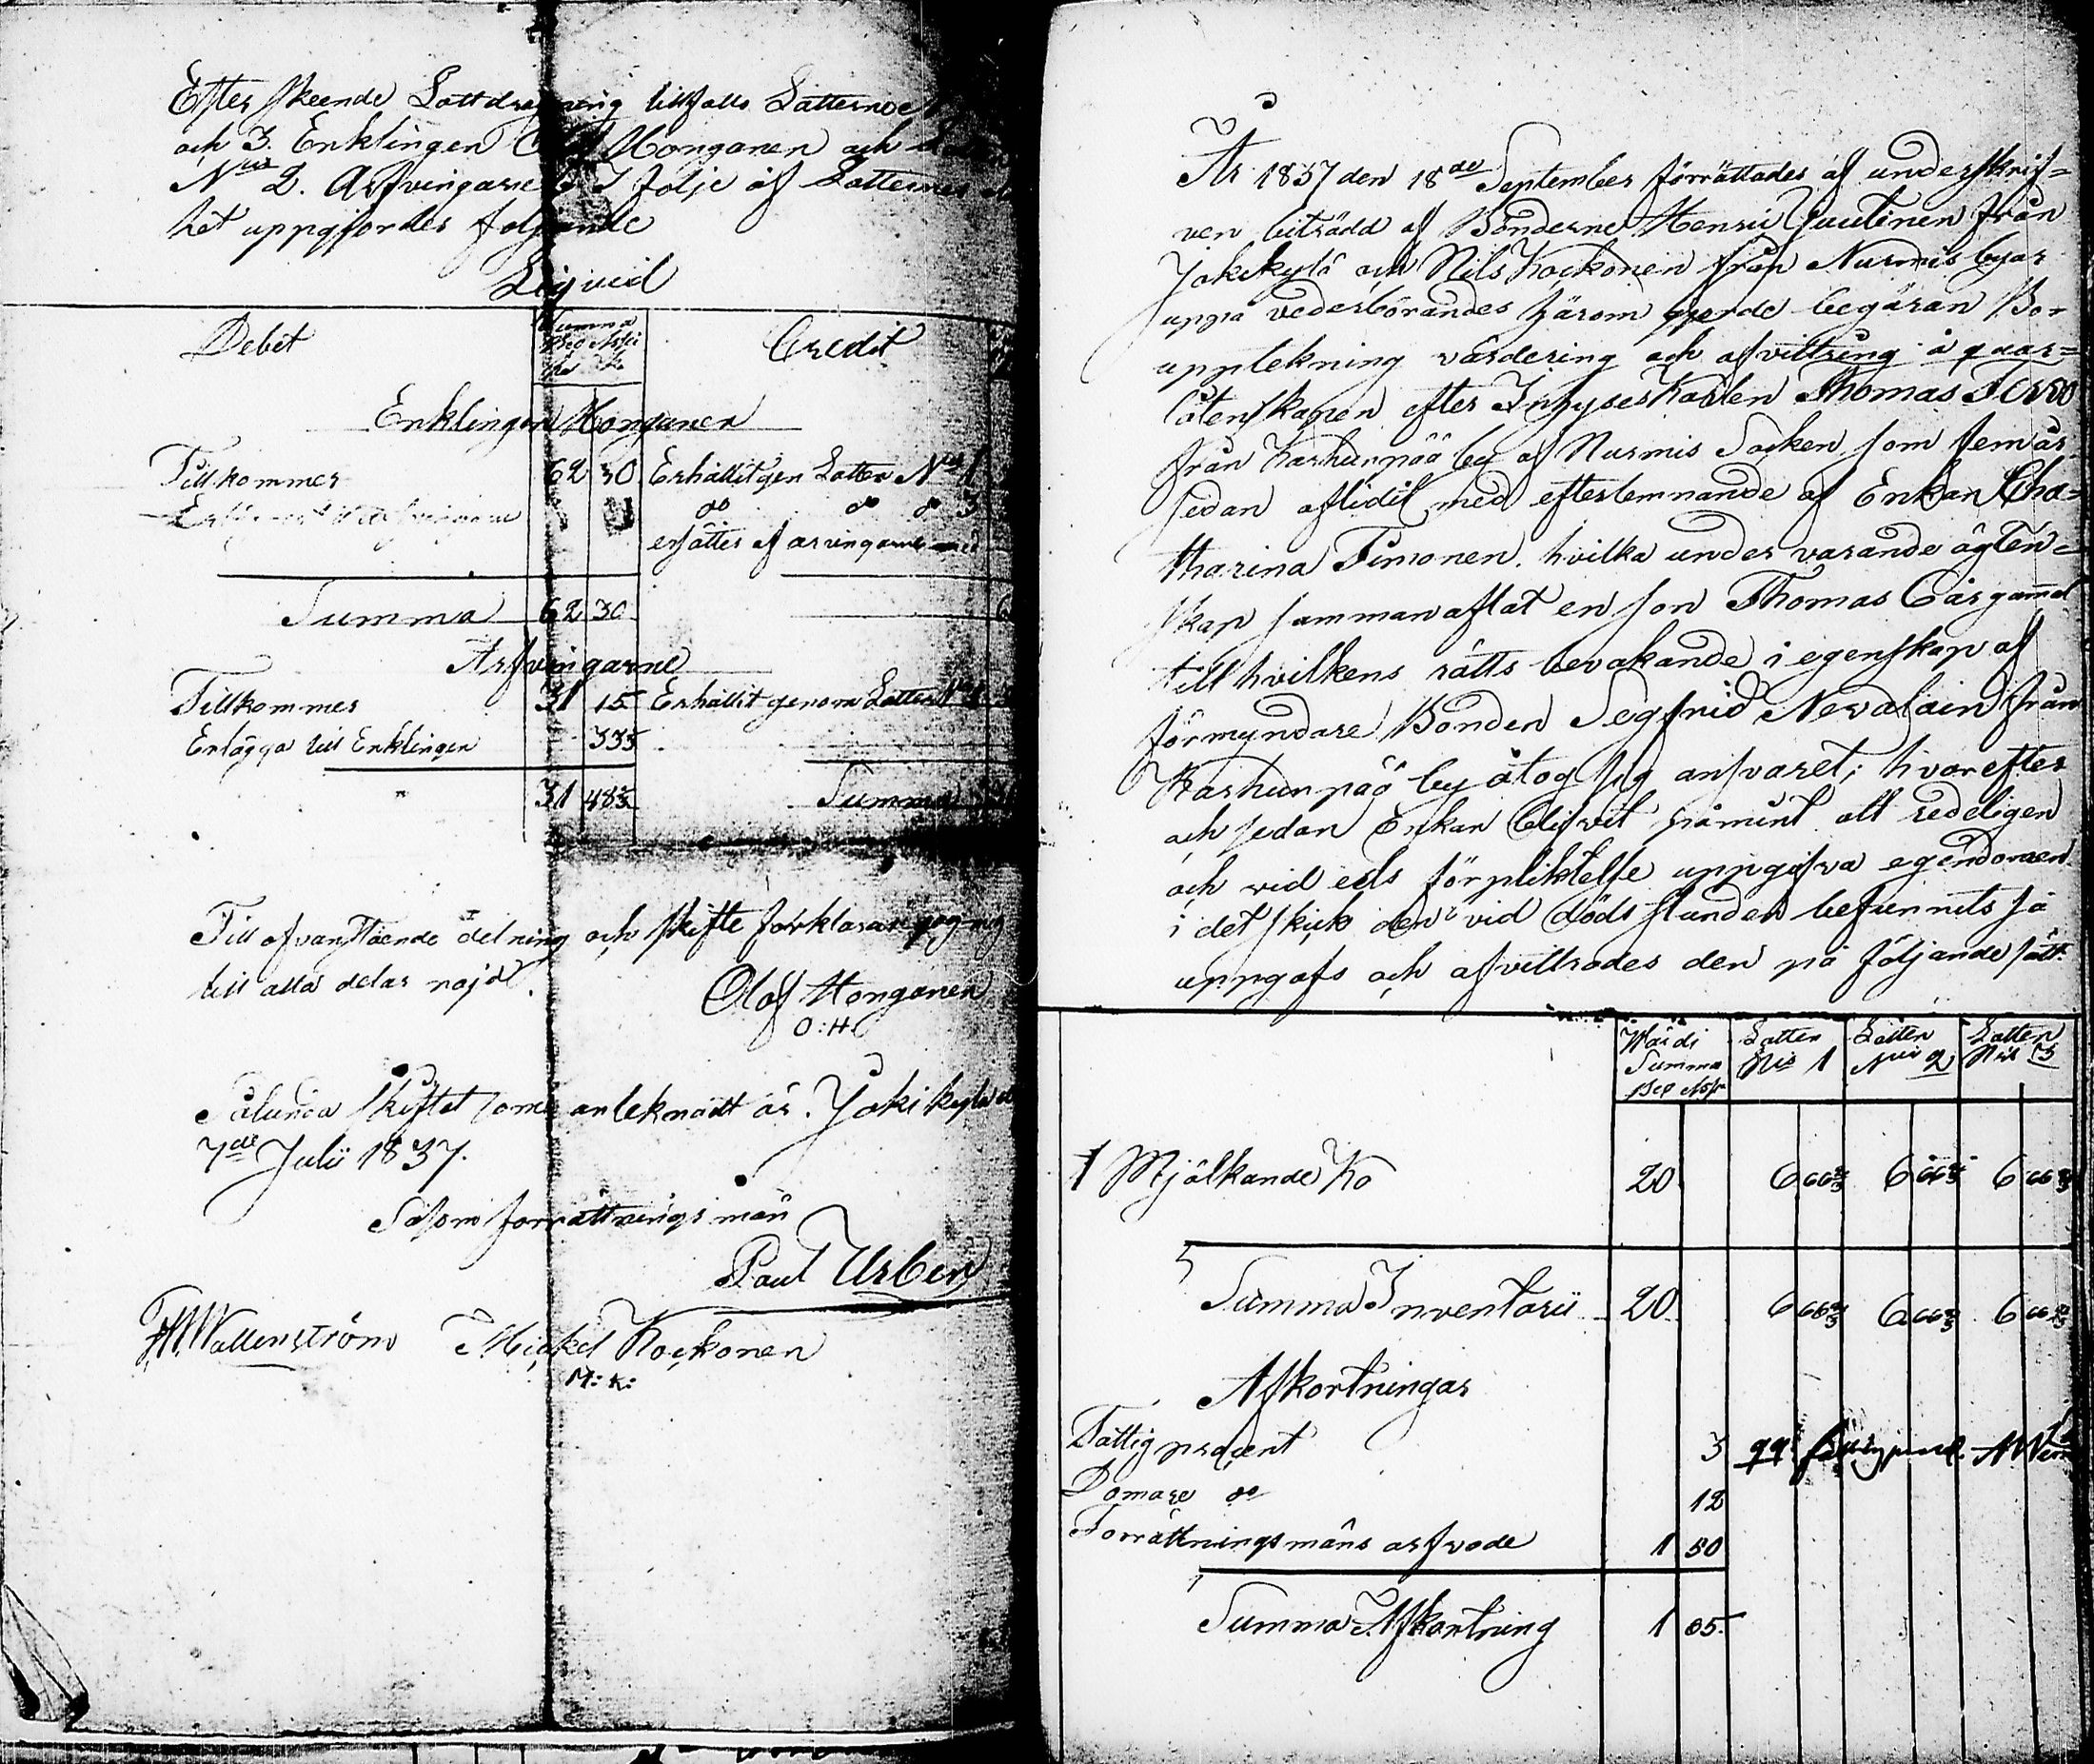 Efter skeende Lottdragning tillfalls Lotterne
och 3. Enklingen Olof Honganen och
N:ris 2. Arfvingarne I följe af Lotternes
het uppgjordes följande
Liqvid
Debet Summa Bco Assi Ro K Credit
Enklingen Honganen
Tillkommer 62 30 Erhållit gen Lotten N:ris 1
do do do 3
ersättes af arvingarne med
Summa 62 30
Arfvingarne
Tillkommer 31 15 Erhållit genom Lotten N:ris 2
Erlägga till Enklingen 33⅔
31 48⅔ Summa
Till ofvanstående delning och skifte förklarar jag mig
till alla delar nöjd.
Olof Honganen
O:H
Sålunda skiftet som antecknadt är. Jokikylä d
7de Julii 1837.
Såsom förrättningsmän
Paul Urbin
Wallenström Mickel Kockonen
M: K:
År 1837 den 18de September förrättades af underskrif=
ven biträdd af Bönderne Henric Juutinen från
Jokikylä och Nils Kockonen från Nurmis byar
uppå vederbörandes härom gjorde begäran Bo=
uppteckning värdering och afvittring å qvar=
låtenskapen efter Inhyseskarlen Thomas Tervo
från Karhunpää by af Nurmis Socken som fem år
sedan aflidit med efterlemnande af Enkan Cha=
tharina Timonen. hvilka under varande ägten=
skap sammanaflat en son Thomas 6 år gammal
till hvilkens rätts bevakande i egenskap af
förmyndare Bonden Segfrid Nevalain från
Karhunpää by åtog sig ansvaret; hvarefter
och sedan Enkan blifvit påmint att redeligen
och vid eds förpliktelse uppgifva egendomen
i det skick den vid dödsstunden befunnits så
uppgafs och afvittrades den på följande sätt
Värdi Summa Bco Assr Lotten N:ris 1 Lotten N:ris 2 Lotten N:ris 3
1 Mjölkande Ko 20 6 66⅔ 6 66⅔ 6 66⅔
Summa Inventarii 20 6 66⅔ 6 66⅔ 6 66⅔
Afkortningar
Fattigprocent 3
Domare do 12
Förrättningsmäns arfvode 1 50
Summa Afkortning 1 65